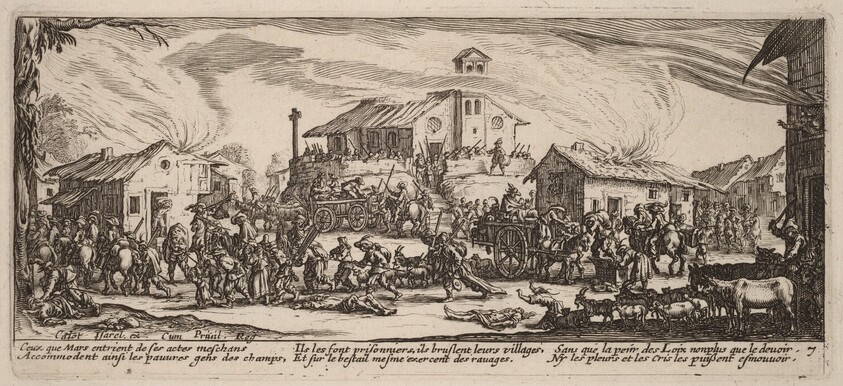 Callot Israel. ex Cum Priuil. Reg
Ceux que Mars entretient de ses actes meschans
Accommodent ainsi les pauures gens des champs,
Ils les font prisonniers, ils bruslent leurs villages,
Et sur le bestail mesme exercent des rauages.
Sans que la peur des Loix nonplus que le deuoir. 7
Ny les pleurs et les Cris les puissent esmouuoir.